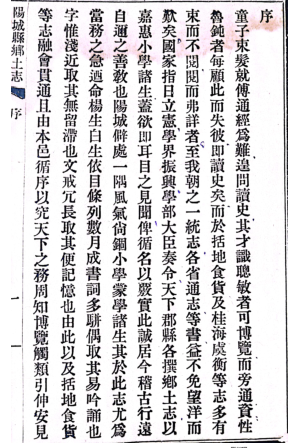 序
童子束髮就傅通經爲難遑問讀史其才識聰敏者可博覽而旁通資性
魯鈍者每顧此而失彼即讀史矣而於括地食貨及桂海虞衡等志多有
束而不閱閱而弗詳者至我朝之一統志各省通志等書益不免望洋而
歎矣國家指日立憲學界振興學部大臣奏令天下郡縣各撰鄉土志以
嘉惠小學諸生蓋欲即耳目之見聞俾循名以覈實此誠居今稽古行遠
自邇之善敎也陽城僻處一隅風氣尙錮小學蒙學諸生其於此志尤爲
當務之急迺命楊生白生依目條列數月成書詞多駢偶取其易吟誦也
字惟淺近取其無留滯也文戒冗長取其便記憶也由此以及括地食貨
等志融會貫通且由本邑循序以究天下之務周知博覽觸類引伸安見
陽城縣鄉土志
序
一